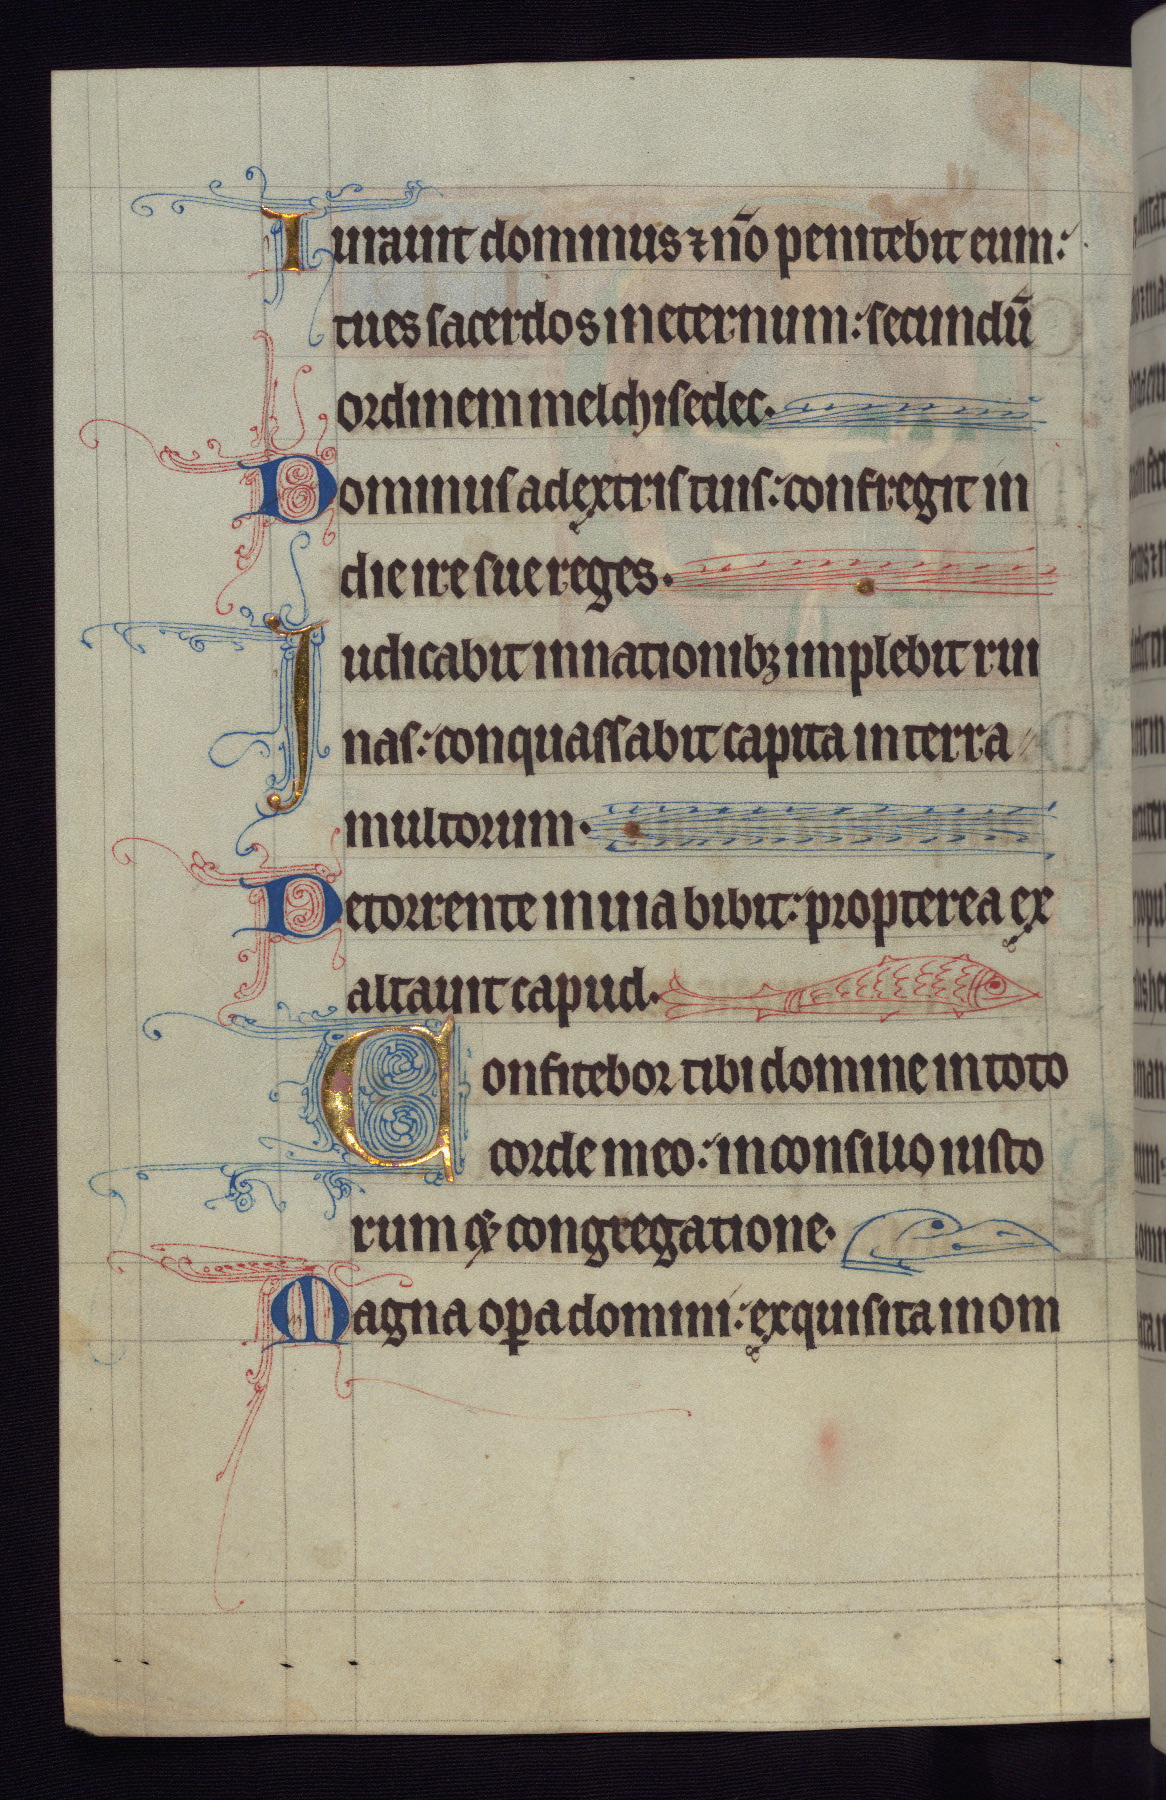 Iurauit dominus ⁊ nō penitebit eum:
tu es sacerdos in eternum: secundū
ordinem melchisedec.
Dominus a dextris tuis: confregit in
die ire sue reges.
Judicabit in nationibꝫ implebit rui
nas: conquassabit capita in terra
multorum.
De torrente in uia bibit: propterea ex
altauit capud.
Confitebor tibi domine in toto
corde meo: in consilio iusto
rum ⁊ congregatione.
Magna oꝑa domini: exquisita in om